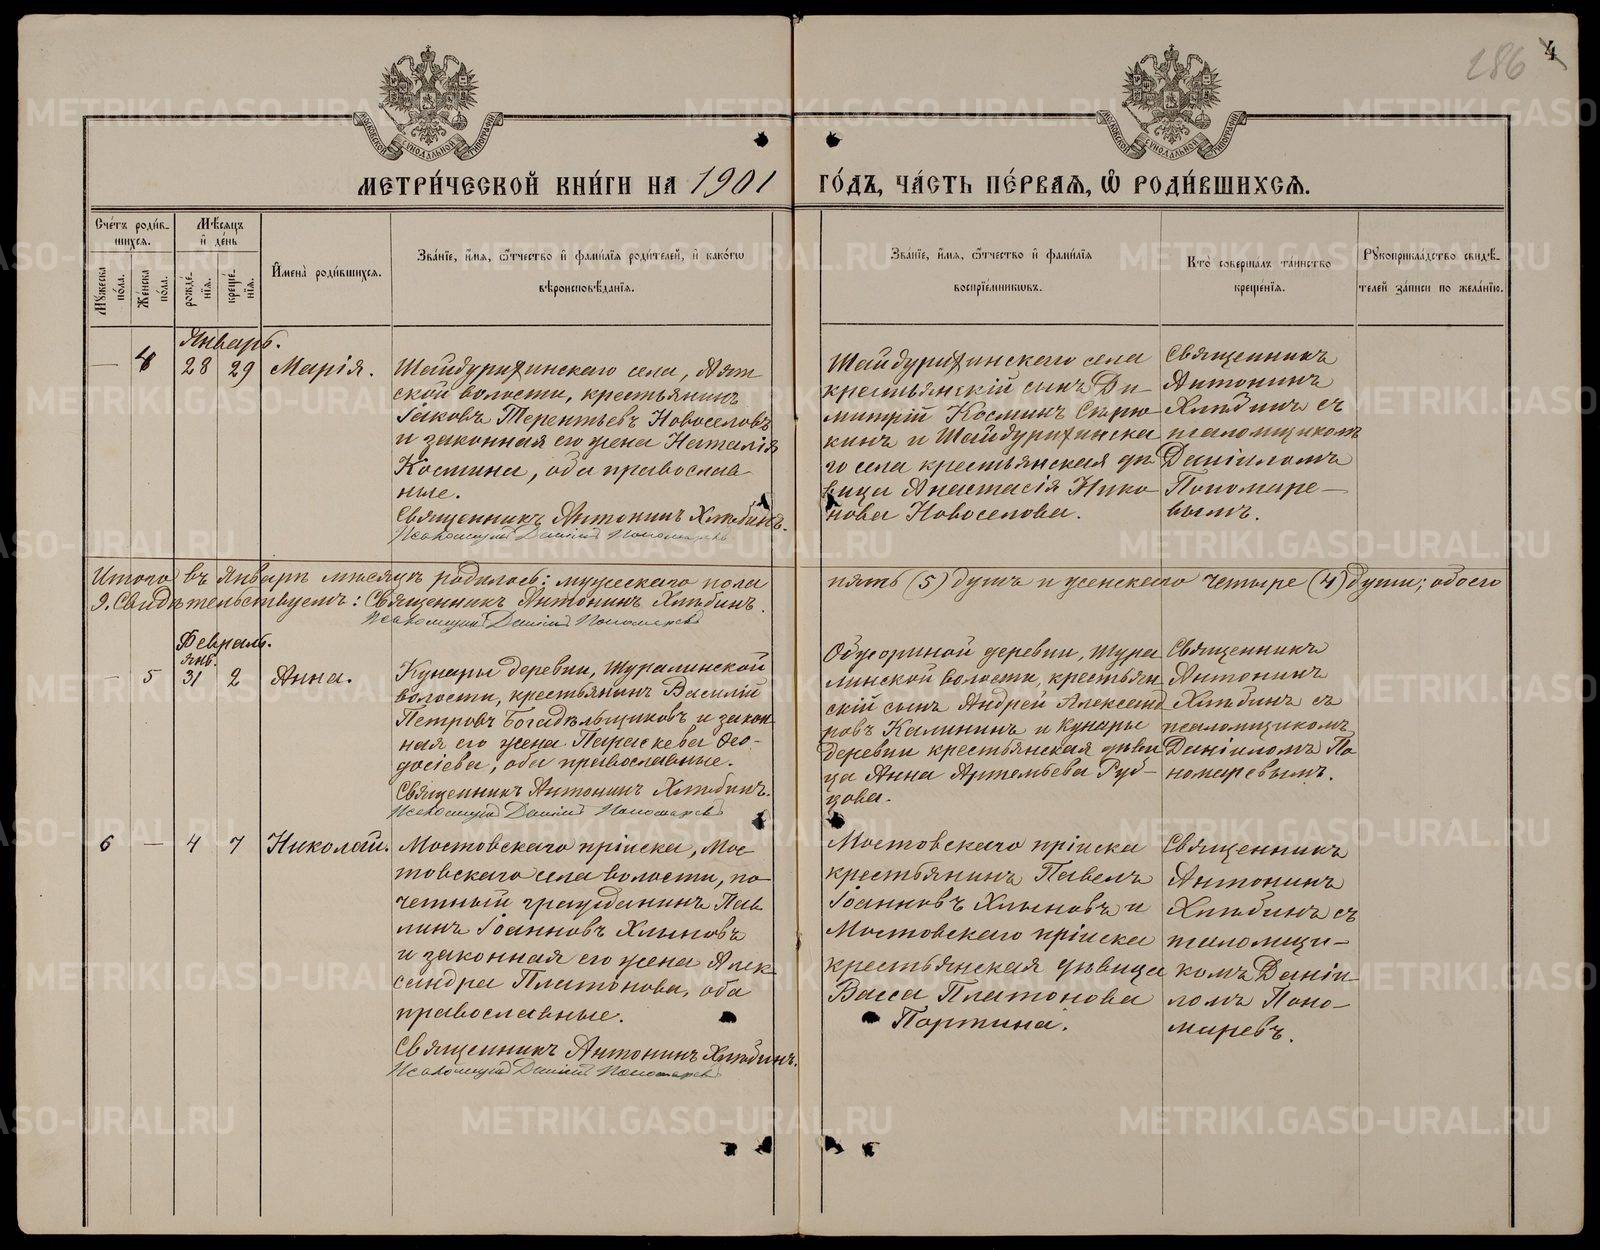 286 4
МЕТРИ́ЧЕСКОЙ КНИ́ГИ НА 1901 ГО́ДЪ, ЧА́СТЬ ПЕ́РВАѦ, Ѽ РОДИ́ВШИХСѦ.
Сче́тъ роди́вшихся.
Мѣ́сяцъ и де́нь
Му́жеска по́ла.
Же́нска по́ла.
рожде́нїя.
креще́нїя.
И҆мена̀ роди́вшихся.
Зва́нїе, и҆́мя, ѻ҆́тчество и҆ фами́лїя роди́телей, и҆ како́гѡ
вѣроисповѣ́данїя.
Зва́нїе, и҆́мя, ѻ҆́тчество и҆ фами́лїя
воспрїе́мниковъ.
Кто̀ соверша́лъ та́инство
креще́нїя.
Рꙋкоприкла́дство свидѣ́-
телей за́писи по жела́нїю.
Январь.
— 4 28 29 Марія.
Шайдурихинскаго села, Аят
ской волости, крестьянинъ
Іаковъ Терентьевъ Новоселовъ
и законная его жена Наталія
Космина, оба православ
ные.
Священникъ Антонинъ Хлѣбинъ.
Псаломщикъ Даніилъ Пономаревъ
Шайдурихинскаго села
крестьянскій сынъ Ди-
митрій Косминъ Сырю
кинъ и Шайдурихинска
го села крестьянская дѣ
вица Анастасія Нико
нова Новоселова.
Священникъ
Антонинъ
Хлѣбинъ съ
псаломщикомъ
Даніиломъ
Пономаре—
вымъ.
Итого въ Январѣ мѣсяцѣ родилось: мужескаго пола пять (5) душъ и женскаго четыре (4) души; обоего
9. Свидѣтельствуемъ: Священникъ Антонинъ Хлѣбинъ.
Псаломщикъ Даніилъ Пономаревъ
Февраль.
янв.
— 5 31 2 Анна.
Кунары деревни, Шуралинской
волости, крестьянинъ Василій
Петровъ Богадѣльщиковъ и закон
ная его жена Параскева Ѳео-
досіева, оба православные.
Священникъ Антонинъ Хлѣбинъ.
Псаломщикъ Даніилъ Пономаревъ
деревни, Шура
линской волости, крестьян
скій сынъ Андрей Александ
ровъ Калининъ и Кунары
деревни крестьянская дѣви
ца Анна Артемьева Руб-
цова.
Священникъ
Антонинъ
Хлѣбинъ съ
псаломщикомъ
Даніиломъ По
номаревымъ.
6 — 4 7 Николай.
Мостовскаго пріиска, Мос
товскаго села волости, по
четный гражданинъ Пав
линъ Іоанновъ Хлыновъ
и законная его жена Алек
сандра Платонова, оба
православные.
Священникъ Антонинъ Хлѣбинъ.
Псаломщикъ Даніилъ Пономаревъ
Мостовскаго пріиска
крестьянинъ Павелъ
Іоанновъ Хлыновъ и
Мостовскаго пріиска
крестьянская дѣвица
Васса Платонова
Портина.
Священникъ
Антонинъ
Хлѣбинъ съ
псаломщи—
комъ Даніи
ломъ Поно—
маревъ.
METRIKI.GASO-URAL.RU